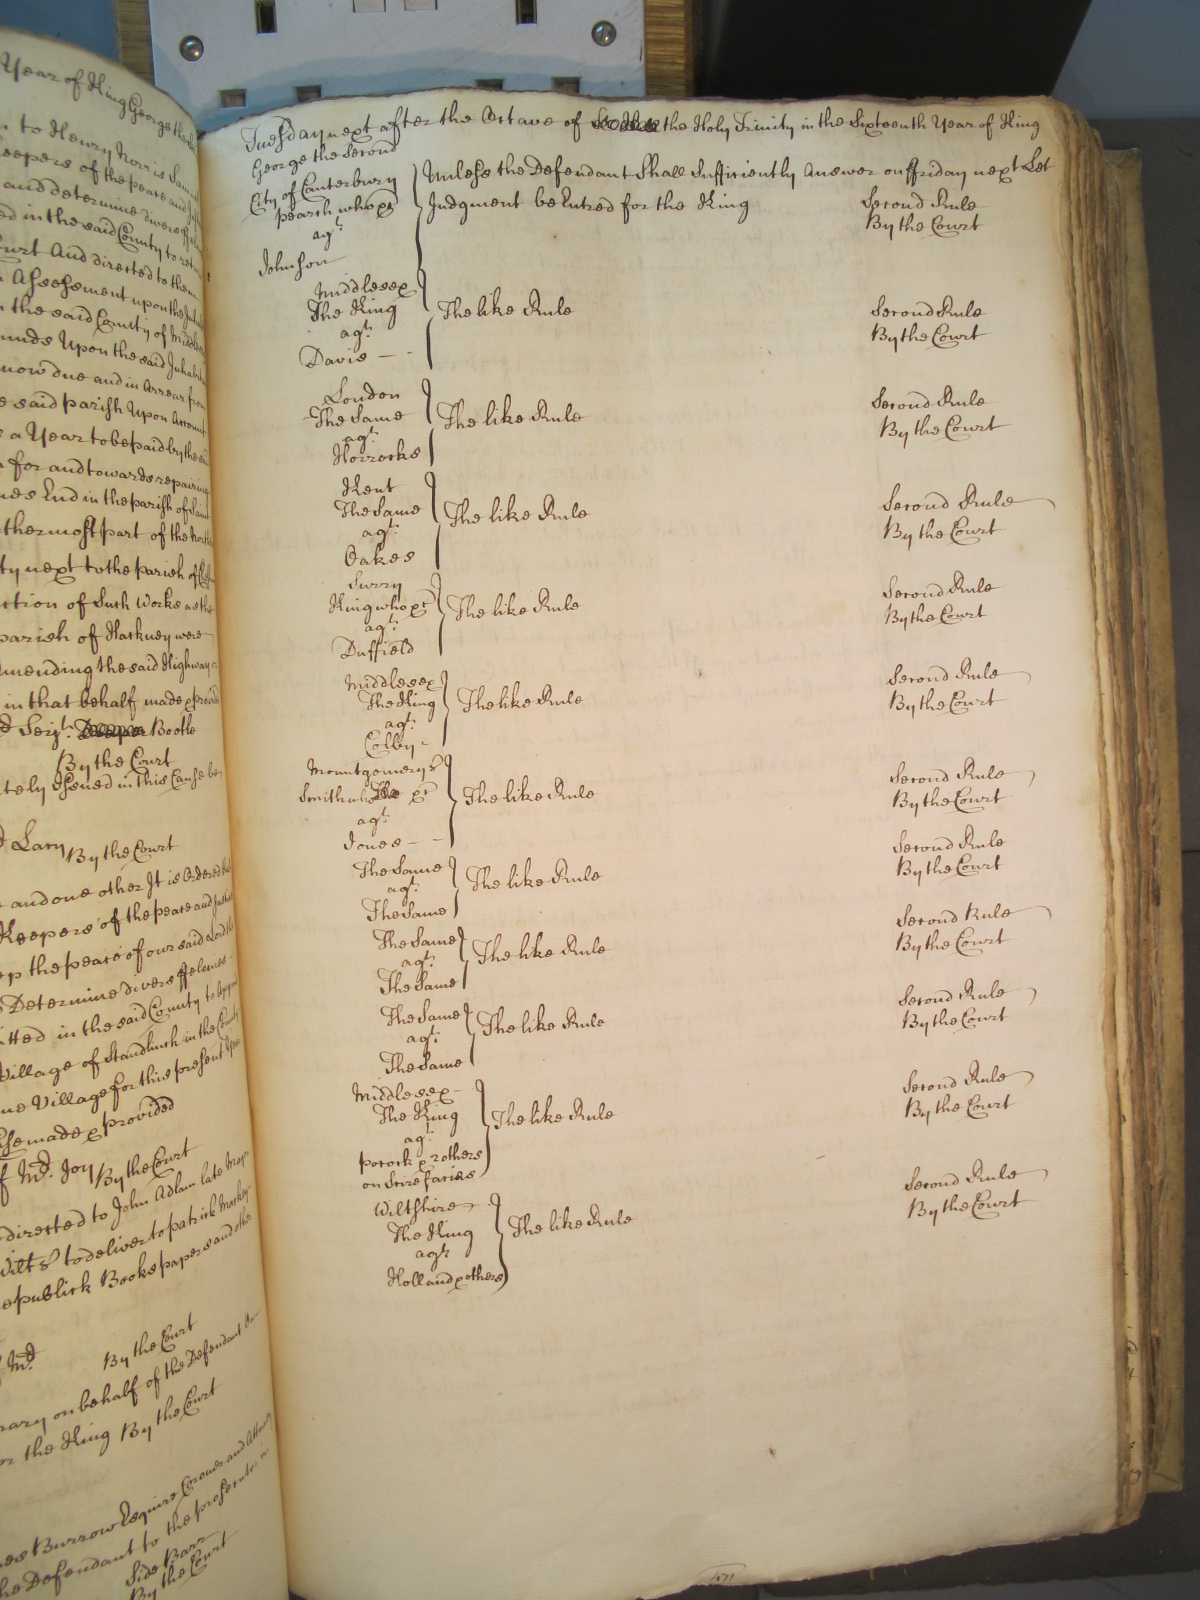 Year of King George the
to Henry Norris Samuel
keepers of the peace and
and determine divers
in the said County to
Court And directed to them
Assessment upon the
the said County of Middlesex
Upon the said
now due and in Arrear from
said parish Upon Account
a Year to be paid by the
for and towards repairing
End in the parish of
thermost part of the
ty next to the parish of
ction of Such Works as the
parish of Hackney were
mending the said Highway
in that behalf made & provided
Serjt. Bootle
By the Court
Issued in this Cause be
Lacy By the Court
and one other It is Ordered
Keepers of the peace and
the peace of our said Lord the
Determine divers ffelonies
itted in the said County to
Village of Standlinch in the County
Village for this present Year
made & provided
Mr. Joy By the Court
directed to John Adlam late
Wilts to deliver to patrick
publick Books papers and other
Md. By the Court
on behalf of the Defendant
the King By the Court
Burrow Esquire Coroner and Attorney
the Defendant to the prosecutor
Side Barr
By the Court
Tuesday next after the Octave of the Holy Trinity in the Sixteenth Year of King
George the Second
City of Canterbury
pearch who pt
agt.
Johnson
Unless the Defendant Shall Sufficiently Answer on ffriday next Let
Judgment be Entred for the King
Second Rule
By the Court
Middlesex
The King
agt.
Davis
The like Rule
Second Rule
By the Court
London
The Same
agt.
Horrocks
The like Rule
Second Rule
By the Court
Kent
The Same
agt.
Oakes
The like Rule
Second Rule
By the Court
Surry
King who pt
agt.
Duffield
The like Rule
Second Rule
By the Court
Middlesex
The King
agt.
Colby
The like Rule
Second Rule
By the Court
Mountgomerys
Smith who pt
agt.
Jones
The like Rule
Second Rule
By the Court
The Same
agt.
The Same
The like Rule
Second Rule
By the Court
The Same
agt.
The Same
The like Rule
Second Rule
By the Court
The Same
agt.
The Same
The like Rule
Second Rule
By the Court
Middlesex
The King
agt.
pocock & others
on Scire facias
The like Rule
Second Rule
By the Court
Wiltshire
The King
agt.
Holland & others
The like Rule
Second Rule
By the Court